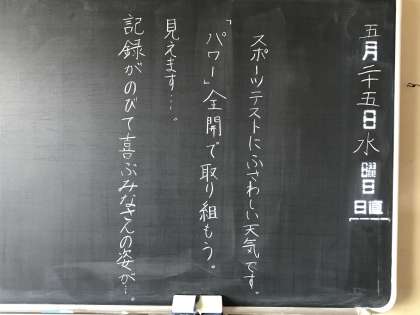 五月二十五日水曜日
日直
スポーツテストにふさわしい天気です。
「パワー」全開で取り組もう。
見えます…。
記録がのびて喜ぶみなさんの姿が…。